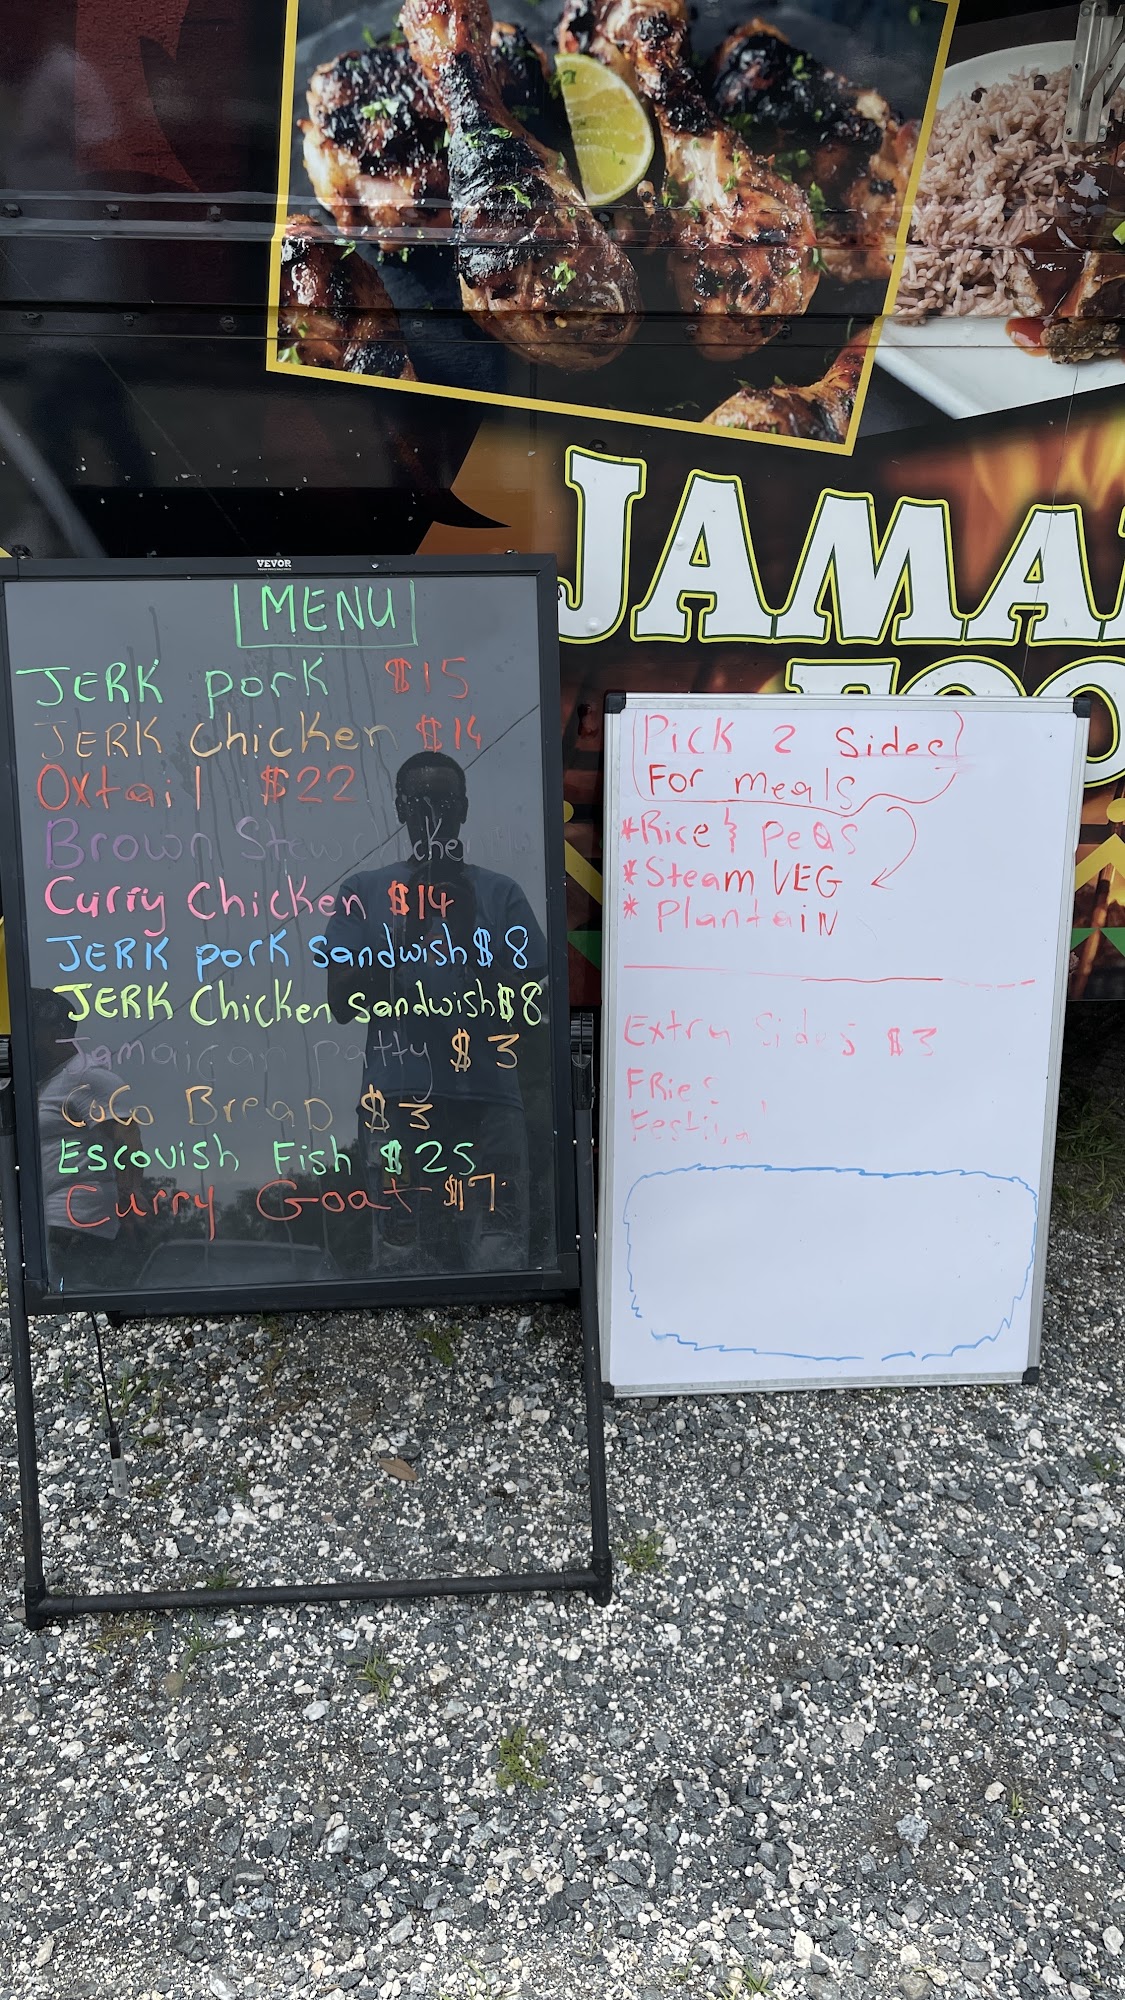 JAMA
FOO
VEVOR
MENU
JERK pork $15
JERK Chicken $14
Oxtail $22
Brown Stew chicken
Curry Chicken $14
JERK pork Sandwish $8
JERK Chicken Sandwish $8
Jamaican patty $3
CoCo Bread $3
Escovish Fish $25
Curry Goat $17
Pick 2 Sides
For meals
*Rice & peas
*Steam VEG
* PlantaiN
Extra Sides $3
FRies
Festival